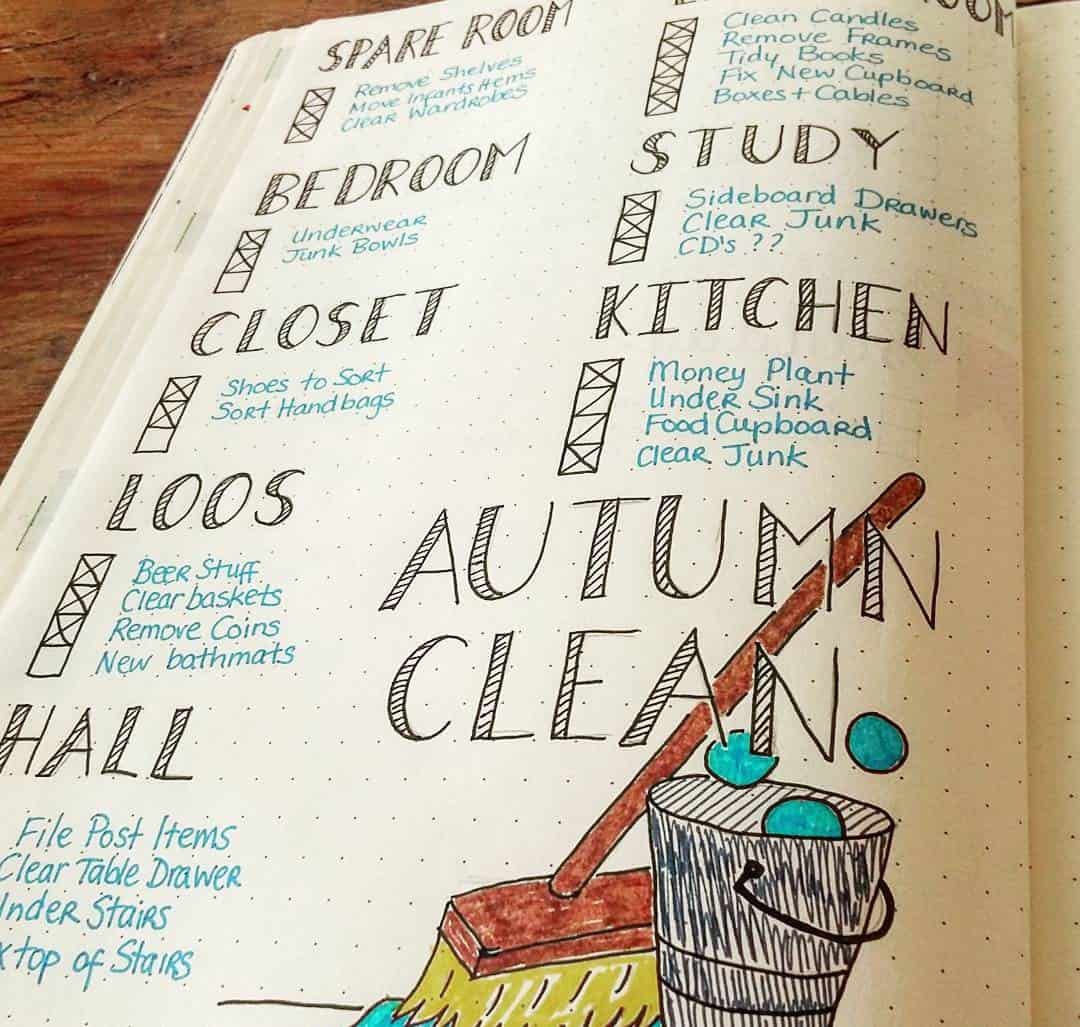 SPARE ROOM
Remove Shelves
Move Infants Items
Clear Wardrobes
BEDROOM
Underwear
Junk Bowls
CLOSET
Shoes to Sort
Sort Handbags
LOOS
Beer Stuff
Clear baskets
Remove Coins
New bathmats
HALL
File Post Items
Clear Table Drawer
Under Stairs
top of Stairs
Clean Candles
Remove Frames
Tidy Books
Fix New Cupboard
Boxes + Cables
STUDY
Sideboard Drawers
Clear Junk
CD's ??
KITCHEN
Money Plant
Under Sink
Food Cupboard
Clear Junk
AUTUMN
CLEAN.